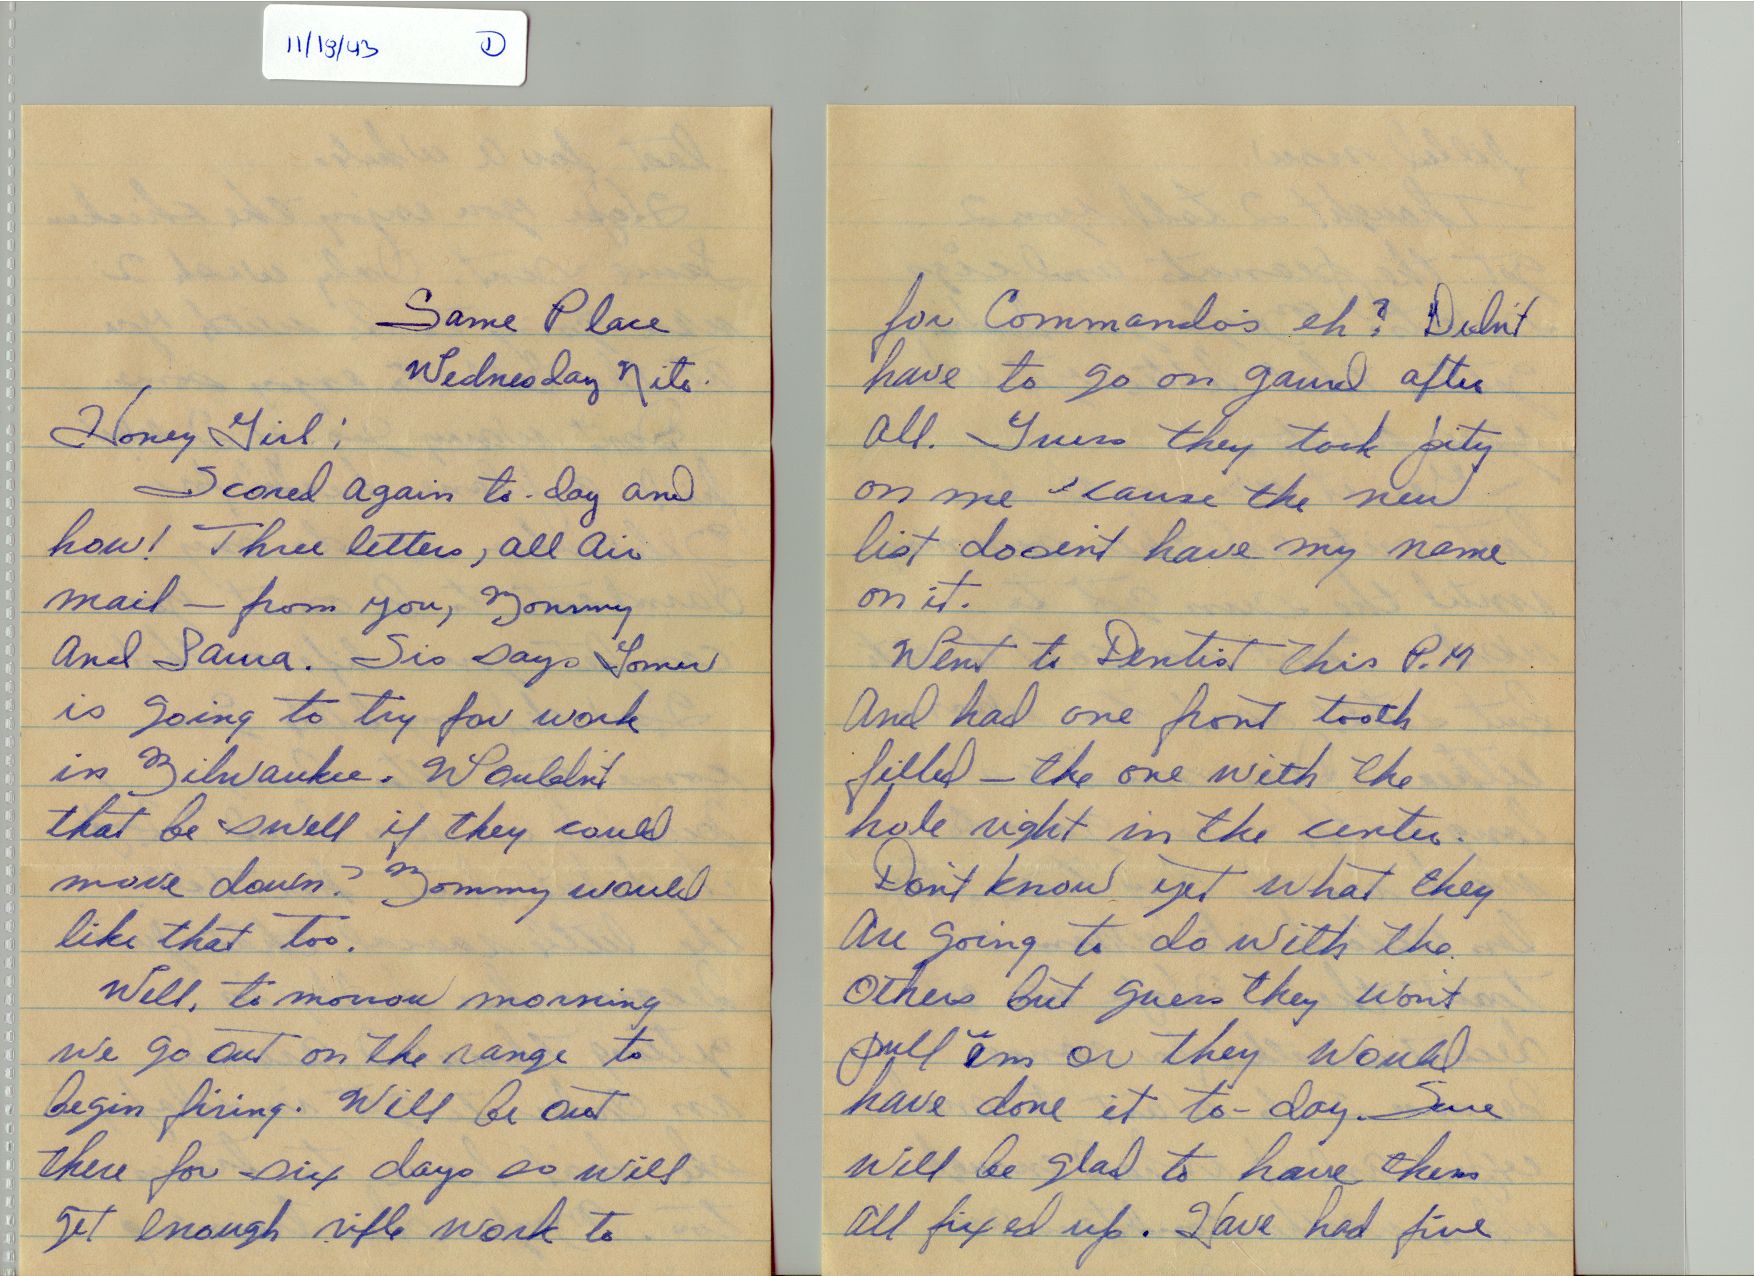 11/18/43 D
Same Place
Wednesday Nite.
Honey Girl;
Scored again to-day and
how! Three letters, all air
mail — from you, Mommy
and Laura. Sis says Gomer
is going to try for work
in Milwaukee. Wouldn't
that be swell if they could
move down? Mommy would
like that too.
Well, tomorrow morning
we go out on the range to
begin firing. Will be out
there for six days so will
get enough rifle work to
for Commando's eh? Didn't
have to go on gaurd after
all. Guess they took pity
on me 'cause the new
list dosen't have my name
on it.
Went to Dentist this P.M
and had one front tooth
filled — the one with the
hole right in the center.
Don't know yet what they
are going to do with the
others but guess they won't
pull 'em or they would
have done it to-day. Sure
will be glad to have them
all fixed up. Have had five